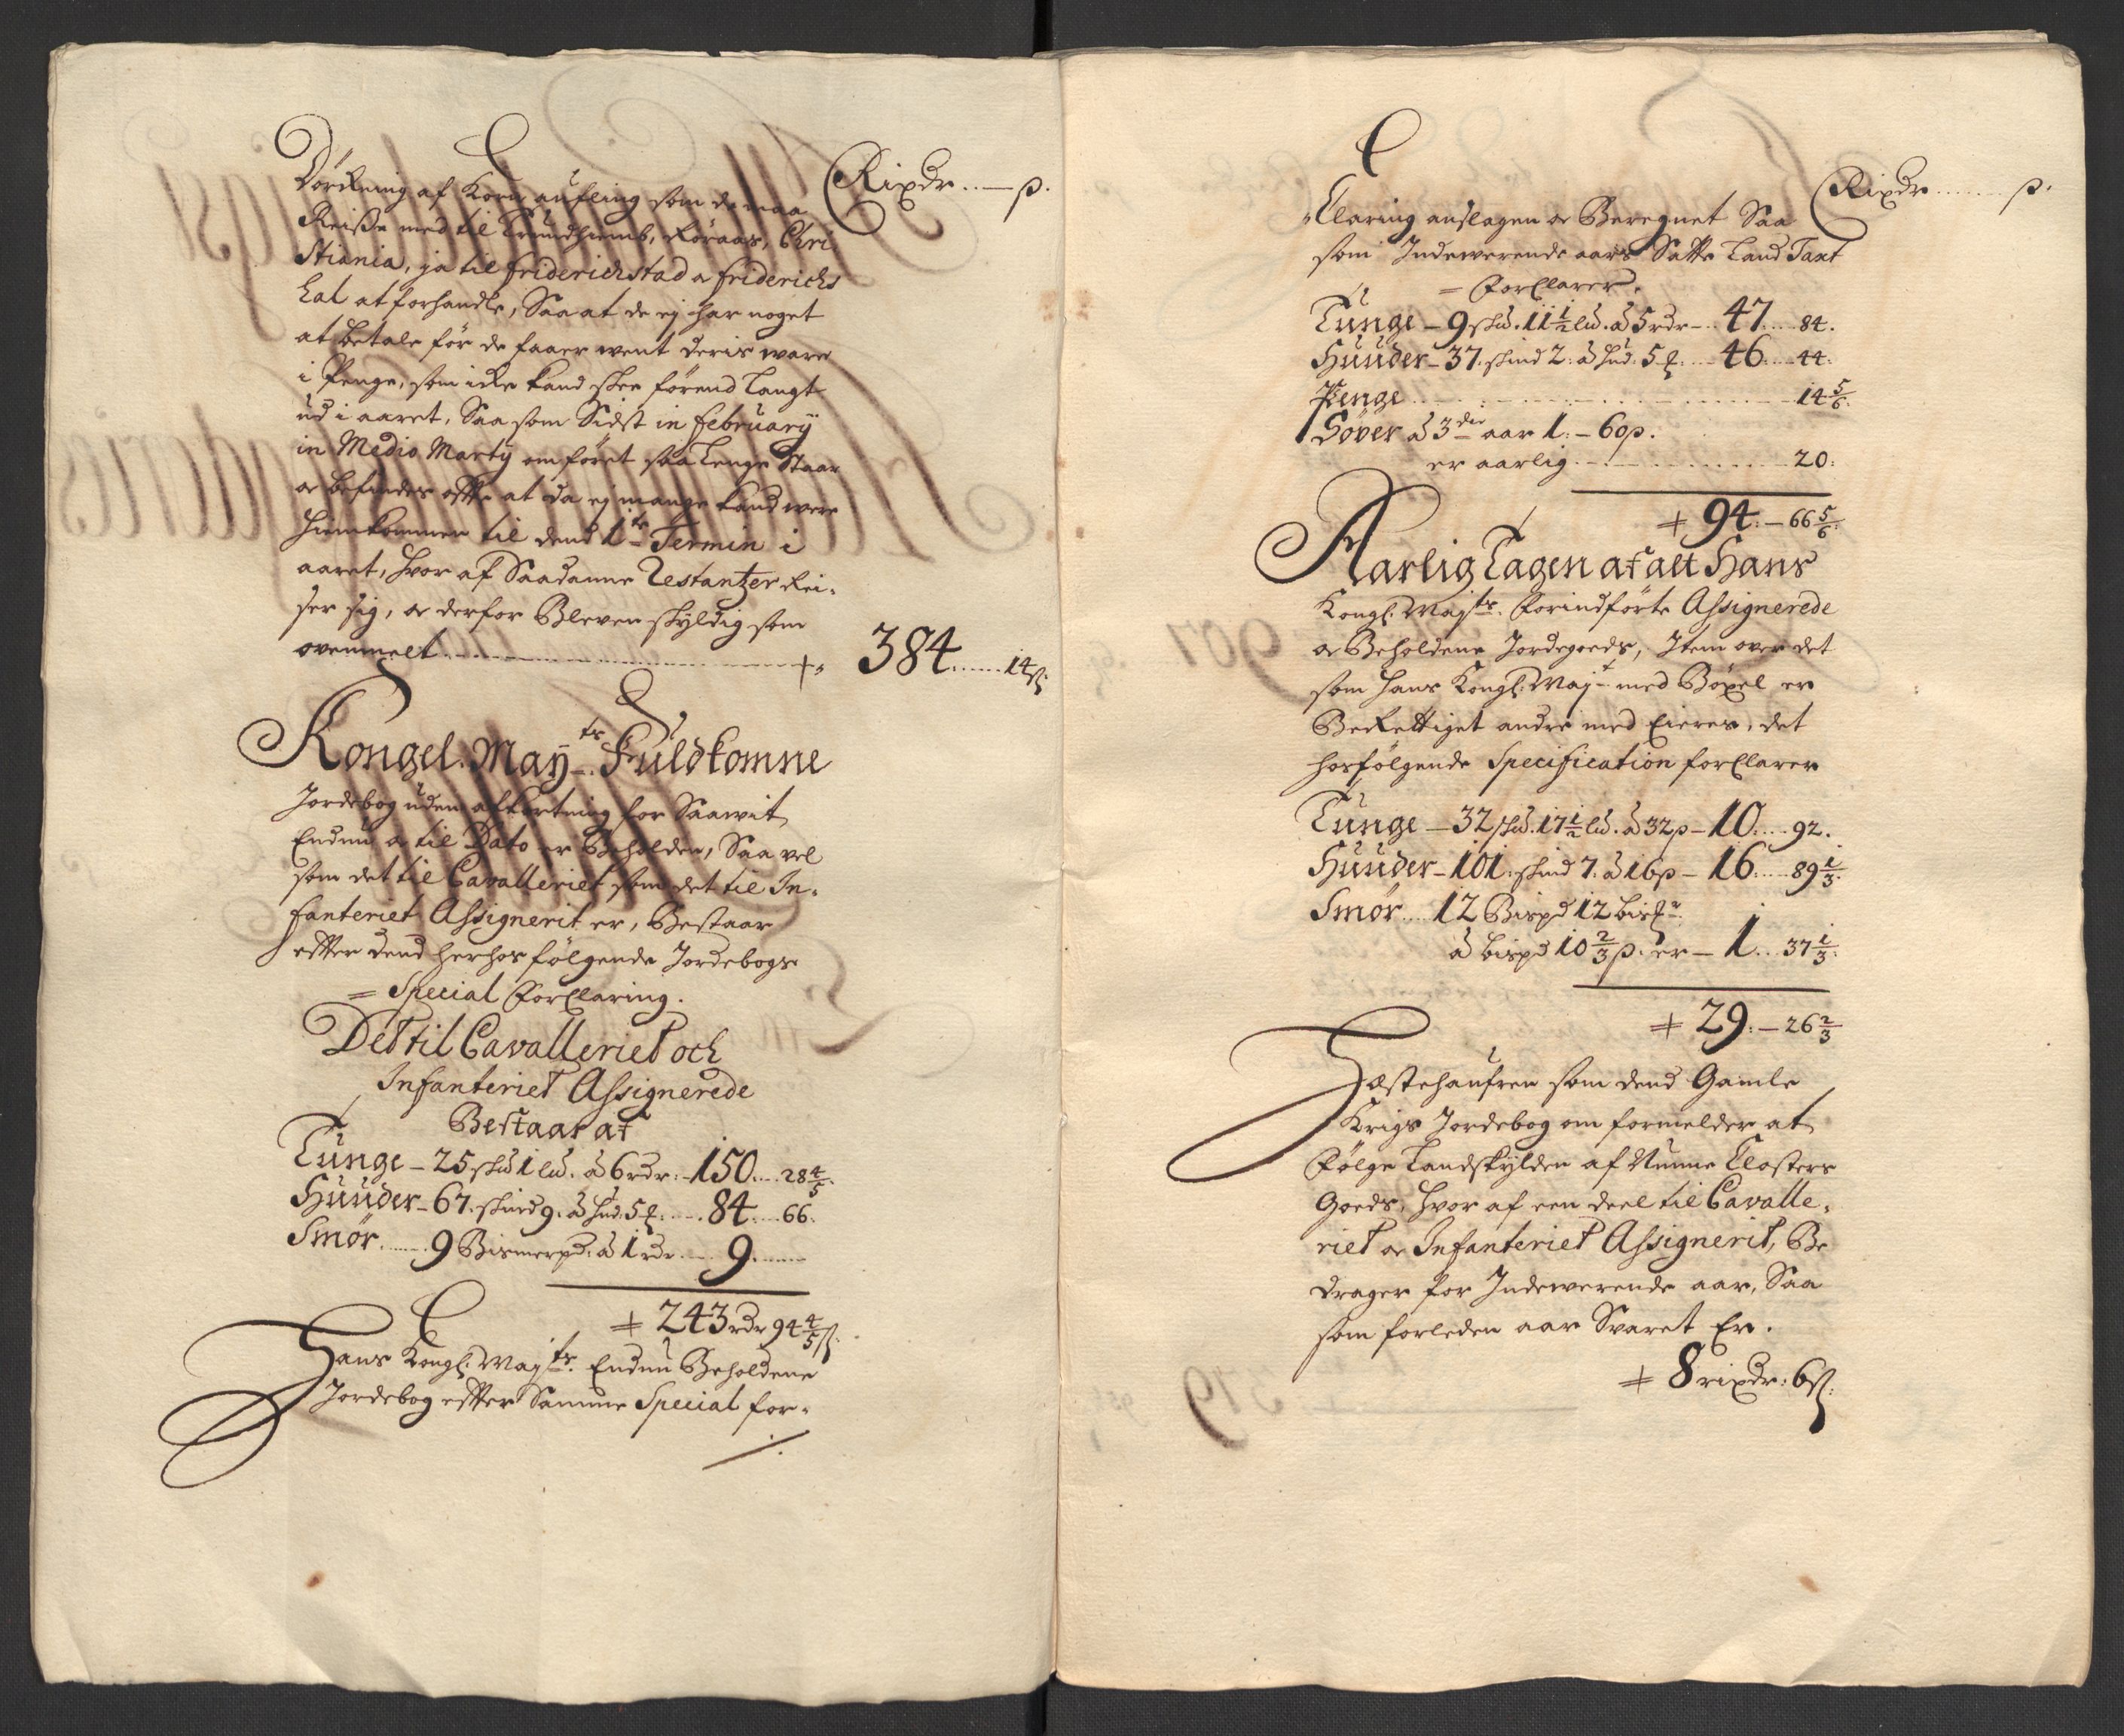 Rixdr..—ß.
Dørkning af Korn aufling som de maa
Reiße med til Trundhiemb, Røraas, Chri
stiania, ja til Friderichstad a Friderichs
hal at forhandle, Saa at de ej har noget
at betale før de faaer went deris ware
i Penge, som icke kand skee førend langt
ud i aaret, Saasom Sidst in February
in Medio Marty om føret saa lenge Staar
oc befindes offte at da ej mange kand were
hiemkommen til dend 1te Termin i
aaret, hvor af Saadanne Restantzer Rei-
ser sig, oc derfor Bleven skyldig som
ovenmelt ........ +, 384......14ß.
Kongel. Mayts. Fuldkomne
Jordebog uden afkortning for Saawit
Endnu a til Dato er Beholden, Saa vel
som det til Cavalleriet som det til In-
fanteriet Assignerit er, Bestaar
effter dend herhos følgende Jordebogs
= Special Forklaring.
Det til Cavalleriet och
Infanteriet Assignerede
Bestaar af
Tunge – 25 skud 1 lud. à 6 rdr: – 150....28 4/5.
Huuder – 67. skind 9. à hud. 5 ........84....66.
Smør......9 Bismerpd: à 1 rdr.....9.......
+ 243 rdr 94 4/5 ß.
Hans Kongl: Mayts. Endnu Beholdene
Jordebog effter Samme Special for-
Rixdr.......ß.
klaring anslagen oc Beregnet Saa
som Indewerende aars Satte Land Taxt
= Forklarer.
Tunge – 9 skud. 11 1/2 lud. à 5 rdr – .. 47....84.
Huuder – 37. skind 2. à hud. 5 ....46....44.
Penge...............14 5/6.
Søver à 3die aar 1. – 60ß.
er aarlig..............20.
+ 94. – 66 5/6.
Aarlig Tagen af alt Hans
Kongl. Mayts. Forindførte Assignerede
oc Beholdene Jordegoeds, Item over det
som Hans Kongl: Mayt med Bøxel er
Berettiget andre med Eieres, det
hosfølgende Specification forklarer
Tunge – 32 skud. 17 1/2 lud. à 32ß – 10....92.
Huuder – 101. skind 7. à 16ß – 16....89 1/3.
Smør....12 Bispd 12
à bispd 10 2/3 ß. er – 1...37 1/3.
+ 29. – 26 2/3
Hæstehaufren som dend Gamle
Krigs Jordebog om formelder at
Følge Landskylden af Nunne Closters
Goeds, hvor af een deel til Cavalle-
riet oc Infanteriet Assignerit, Be
drager for Indewerende aar, Saa
som forleden aar Svaret Er.
+ 8 rixdr: 6ß.